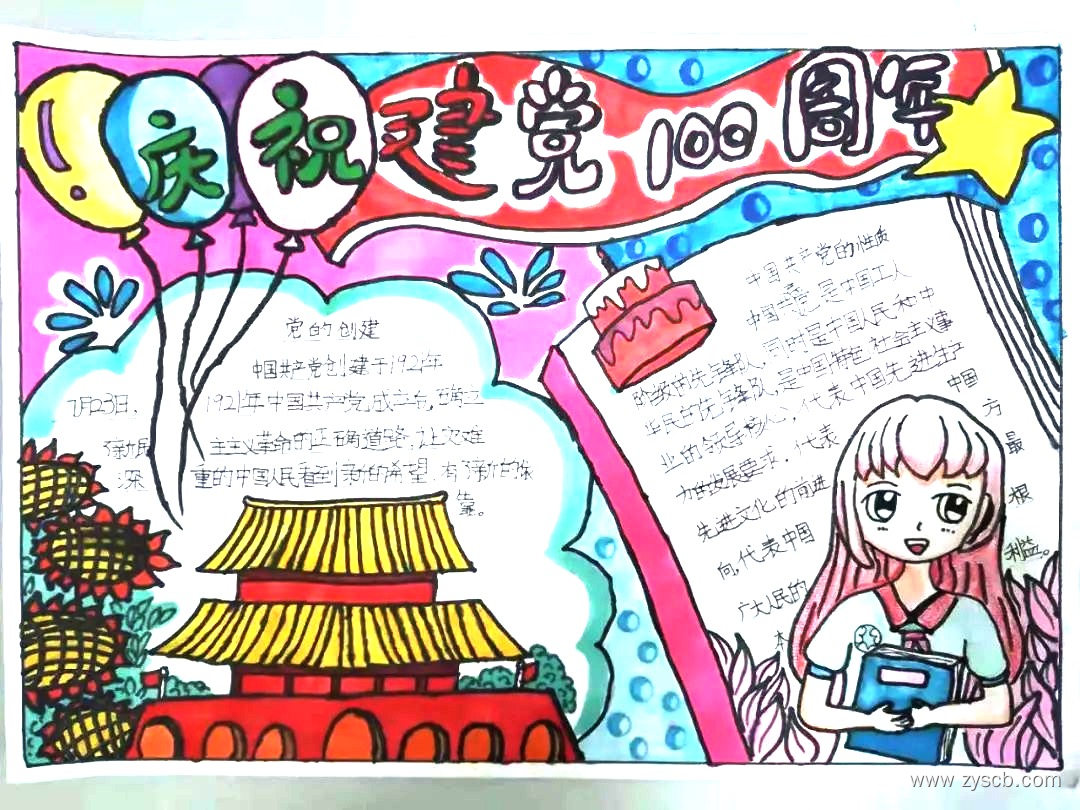 庆祝建党100周年
党的创建
中国共产党创建于1921年
7月23日, 1921年中国共产党成立后,确立
新民主主义革命的正确道路,让灾难
深重的中国人民看到新的希望,有了新的依
靠。
中国共产党的性质
中国共产党,是中国工人
阶级的先锋队,同时是中国人民和中
华民族的先锋队,是中国特色社会主义事
业的领导核心,代表中国先进生产
力的发展要求,代表中国
先进文化的前进方
向,代表中国最
广大人民的根
本利益。
www.zyscb.com